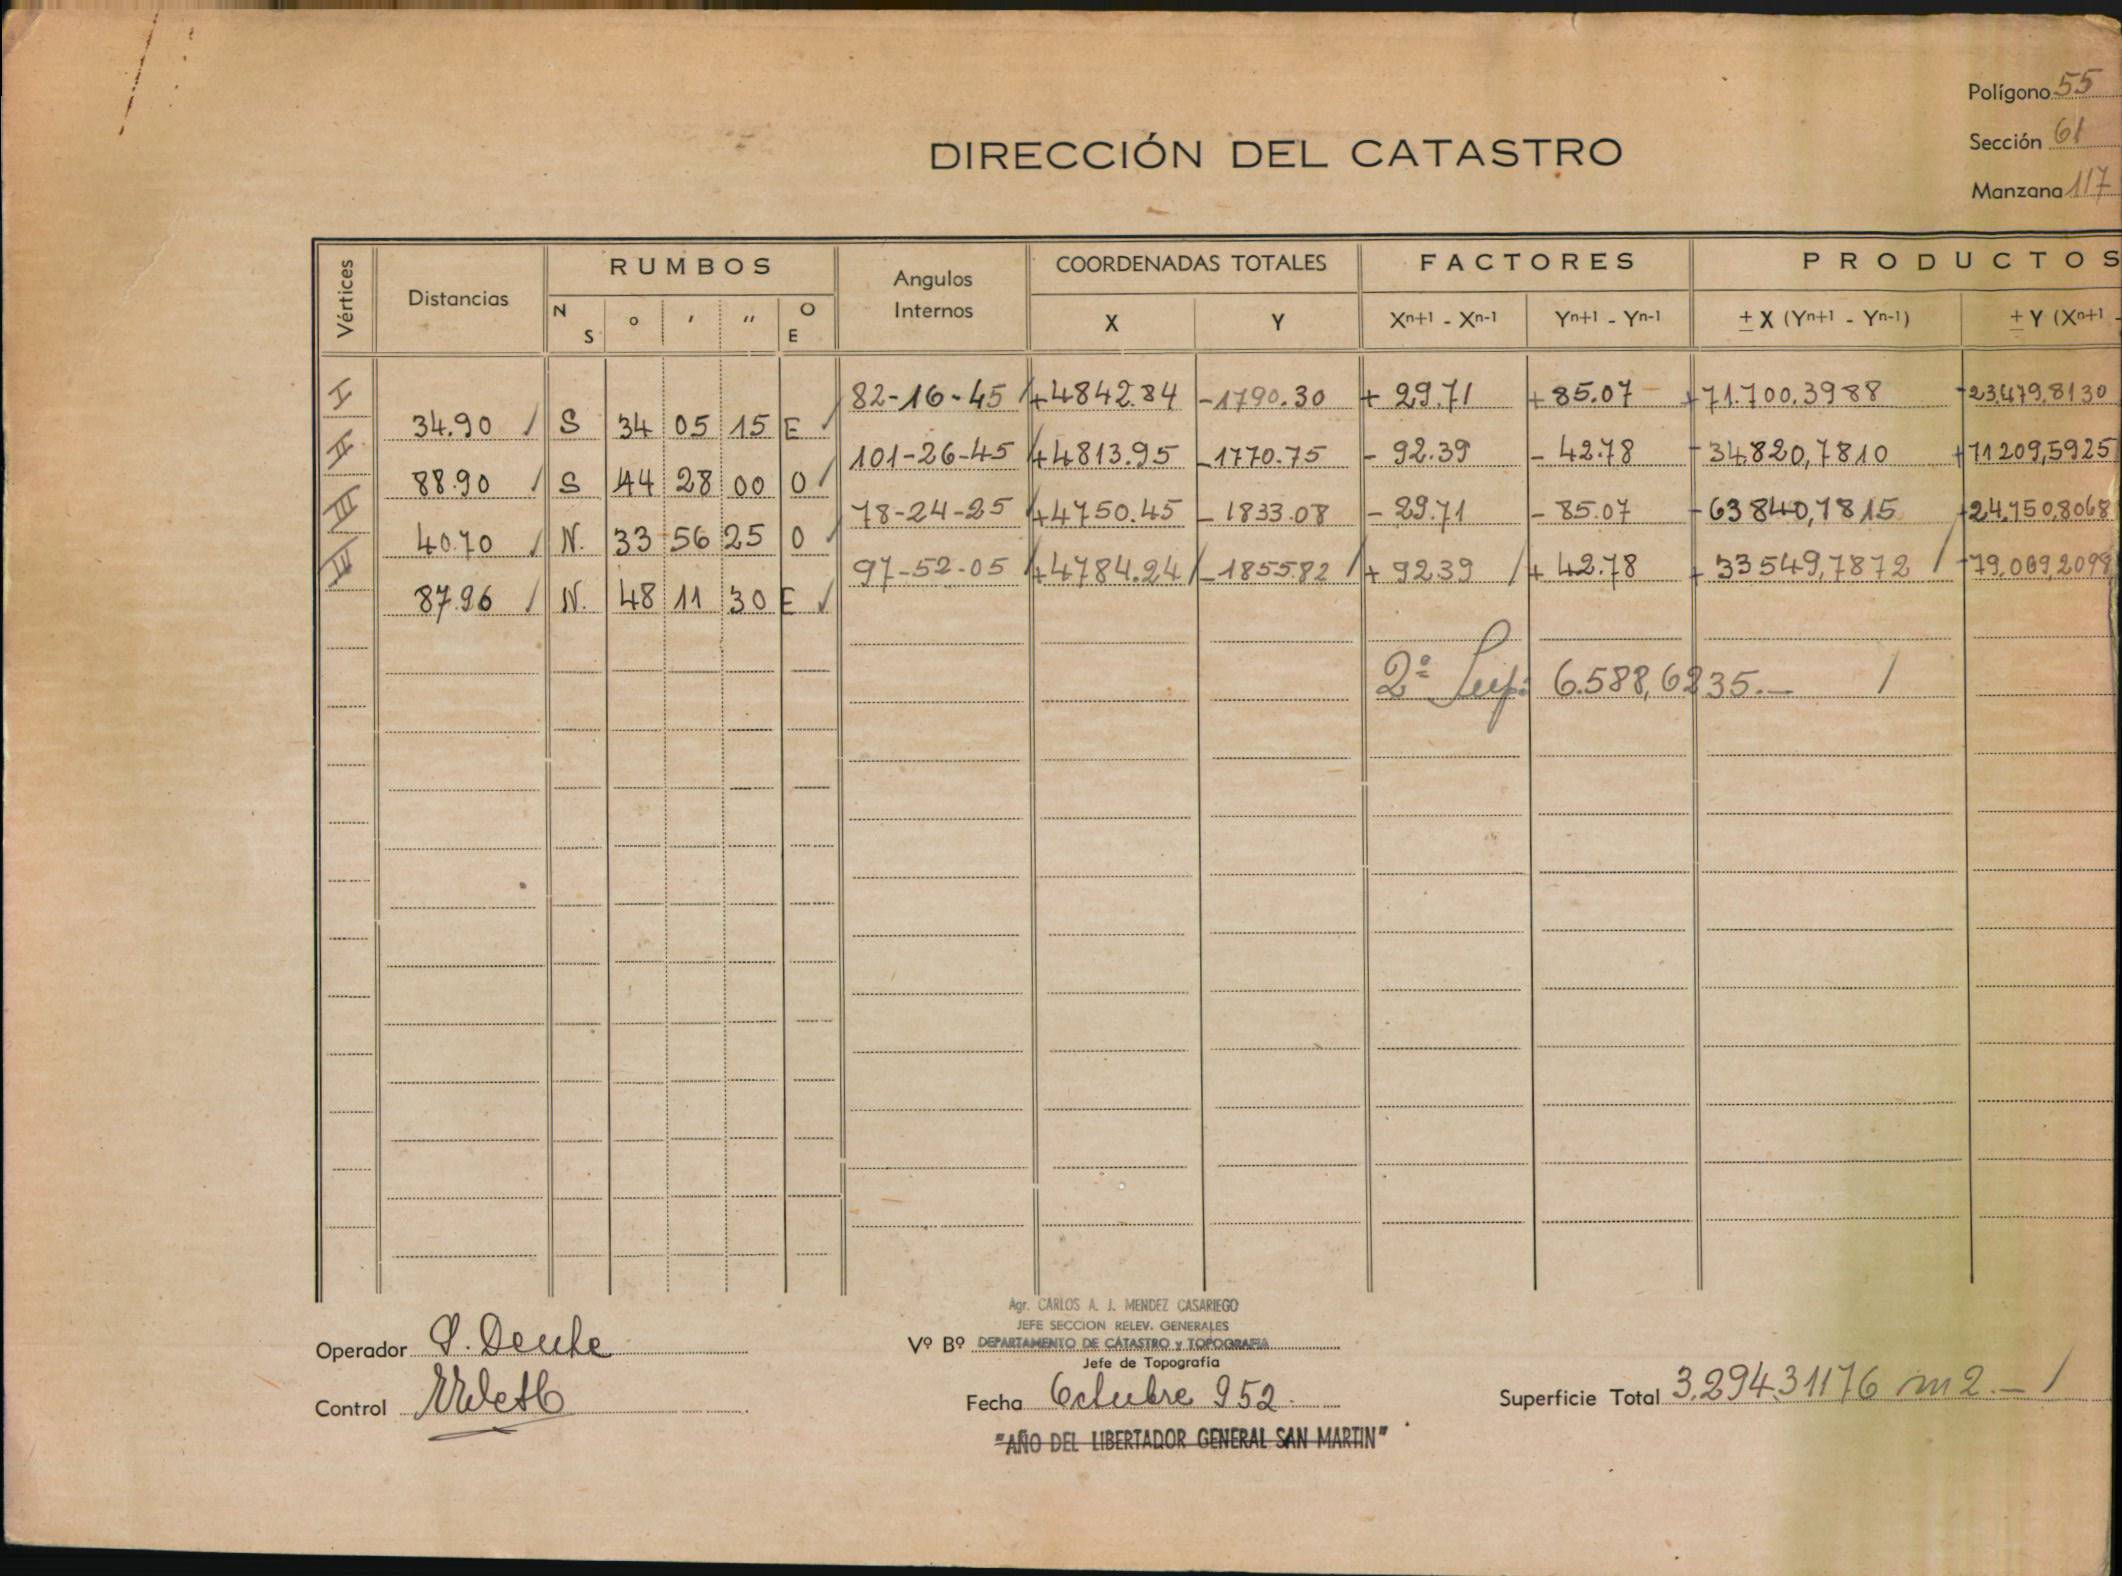 Polígono 55
DIRECCIÓN DEL CATASTRO
Sección 61
Manzana 117
Vértices Distancias RUMBOS Angulos Internos COORDENADAS TOTALES FACTORES PRODUCTOS
N S ° ′ ″ O E X Y Xn+1 - Xn-1 Yn+1 - Yn-1 ± X (Yn+1 - Yn-1) ± Y (Xn+1 -
I 82-16-45 +4842.84 -1790.30 + 29.71 + 85.07 +71.700,3988 -23.479,8130
34.90 S 34 05 15 E
II 101-26-45 +4813.95 -1770.75 - 92.39 - 42.78 -34.820,7810 +71209,5925
88.90 S 44 28 00 O
III 78-24-25 +4750.45 -1833.08 - 29.71 - 85.07 -63840,7815 +24.150,8068
40.70 N. 33 56 25 O
IV 97-52-05 +4784.24 -1855.82 + 92.39 + 42.78 + 33549,7872 -79.069,2098
87.96 N. 48 11 30 E
2ª Sup: 6.588,6235.-
Agr. CARLOS A. J. MENDEZ CASARIEGO
JEFE SECCION RELEV. GENERALES
Operador
Vº Bº DEPARTAMENTO DE CATASTRO y TOPOGRAFIA
Jefe de Topografía
Control
Fecha Octubre 952.
Superficie Total 3.294.31176 m2.-
"AÑO DEL LIBERTADOR GENERAL SAN MARTIN"